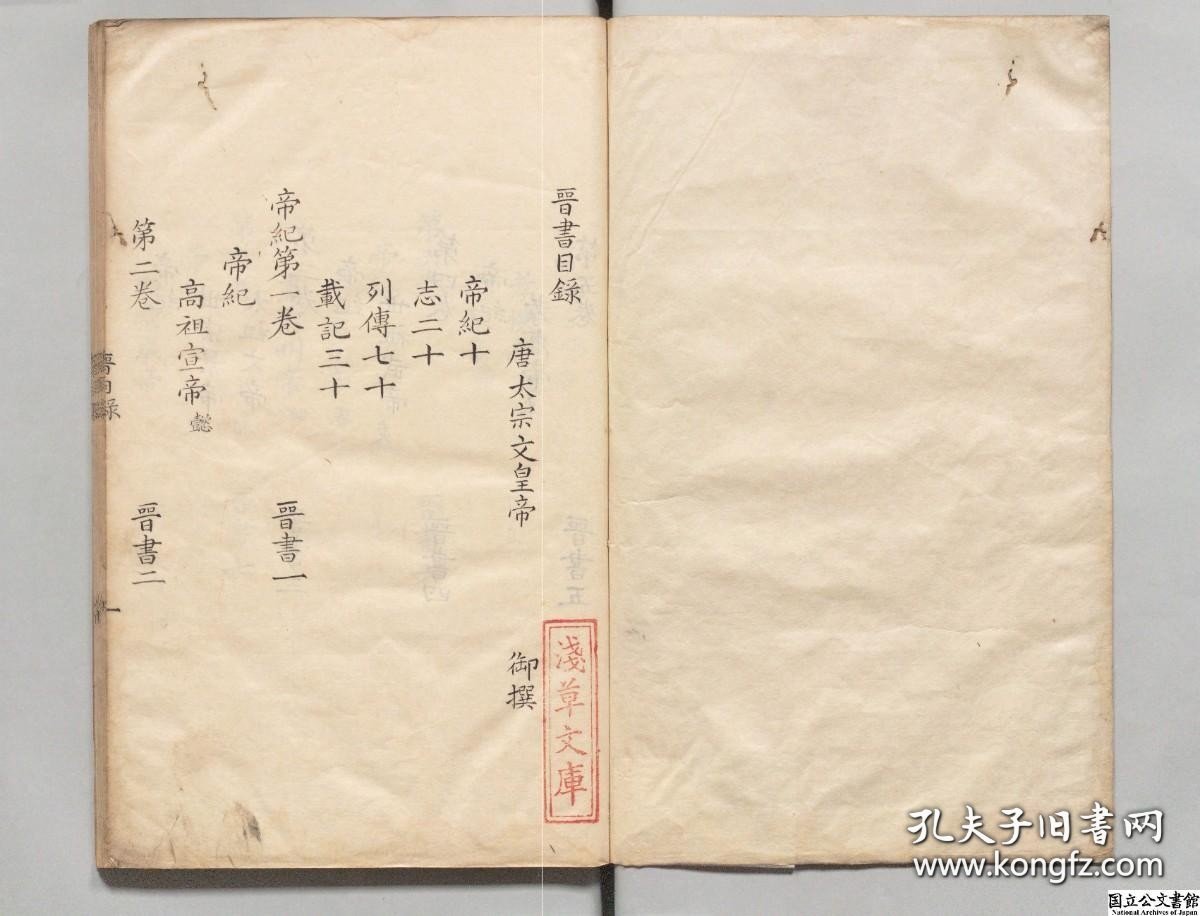 晉書目錄
唐太宗文皇帝 御撰
帝紀十
志二十
列傳七十
載記三十
帝紀第一卷 晉書一
帝紀
高祖宣帝 懿
第二卷 晉書二
晉目錄
一
淺草文庫
孔夫子旧书网
www.kongfz.com
国立公文書館
National Archives of Japan